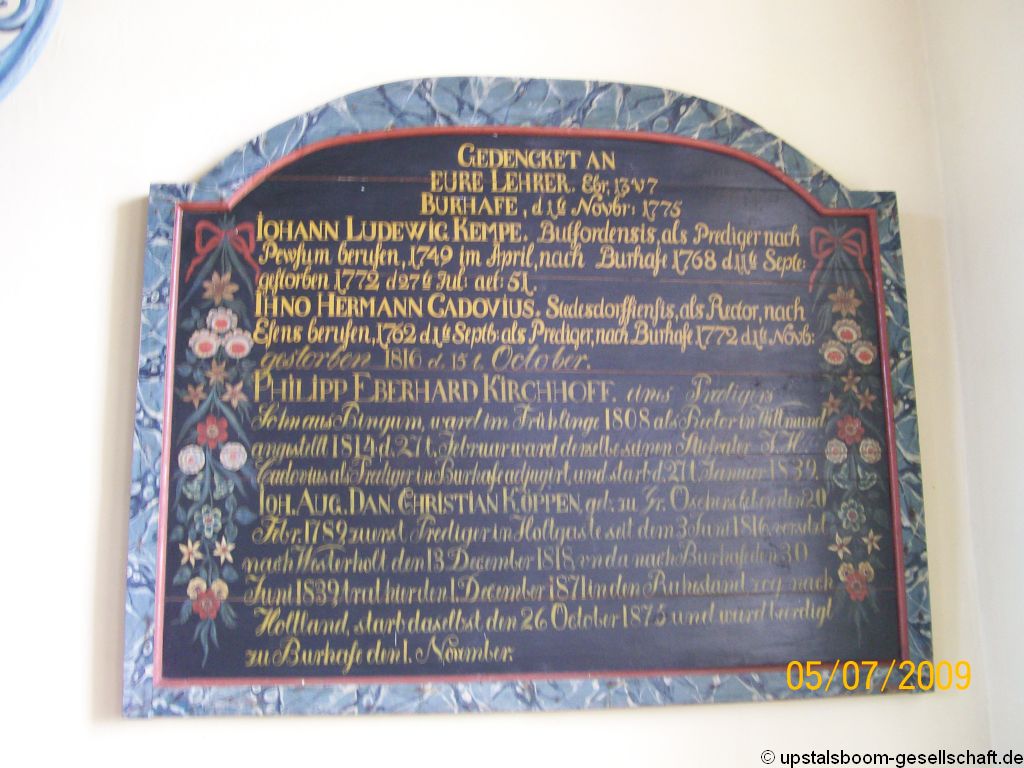 GEDENCKET AN
EURE LEHRER. Ebr. 13 V 7
BURHAFE, d 1te Novbr: 1775
IOHANN LUDEWIG KEMPE. Buttfordensis, als Prediger nach
Pewsum berufen, 1749 im April, nach Burhafe 1768 d 11te Septe:
gestorben 1772 d 27te Jul: aet: 51.
IHNO HERMANN CADOVIUS. Stedesdorffiensis, als Rector, nach
Esens berufen, 1762 d 1te Septb: als Prediger, nach Burhafe 1772 d 1te Novb:
gestorben 1816 d. 15 t. October.
PHILIPP EBERHARD KIRCHHOFF. eines Predigers
Sohn aus Bingum, ward im Frühlinge 1808 als Rector in Wittmund
angestellt 1814 d. 27 t. Februar ward derselbe seinem Stiefvater I. H.
Cadovius als Prediger in Burhafe adjugirt, und starb d. 27 t. Januar 1839.
IOH. AUG. DAN. CHRISTIAN KÖPPEN, geb. zu Gr. Oschersleben den 20
Febr. 1789 zuerst Prediger in Holtgaste seit dem 3 Juni 1816 versetzt
nach Westerholt den 13 December 1818 von da nach Burhafe den 30
Juni 1839, trat hier den 1. December 1871 in den Ruhestand zog nach
Holtland, starb daselbst den 26 October 1875 und ward beerdigt
zu Burhafe den 1. November.
05/07/2009
© upstalsboom-gesellschaft.de